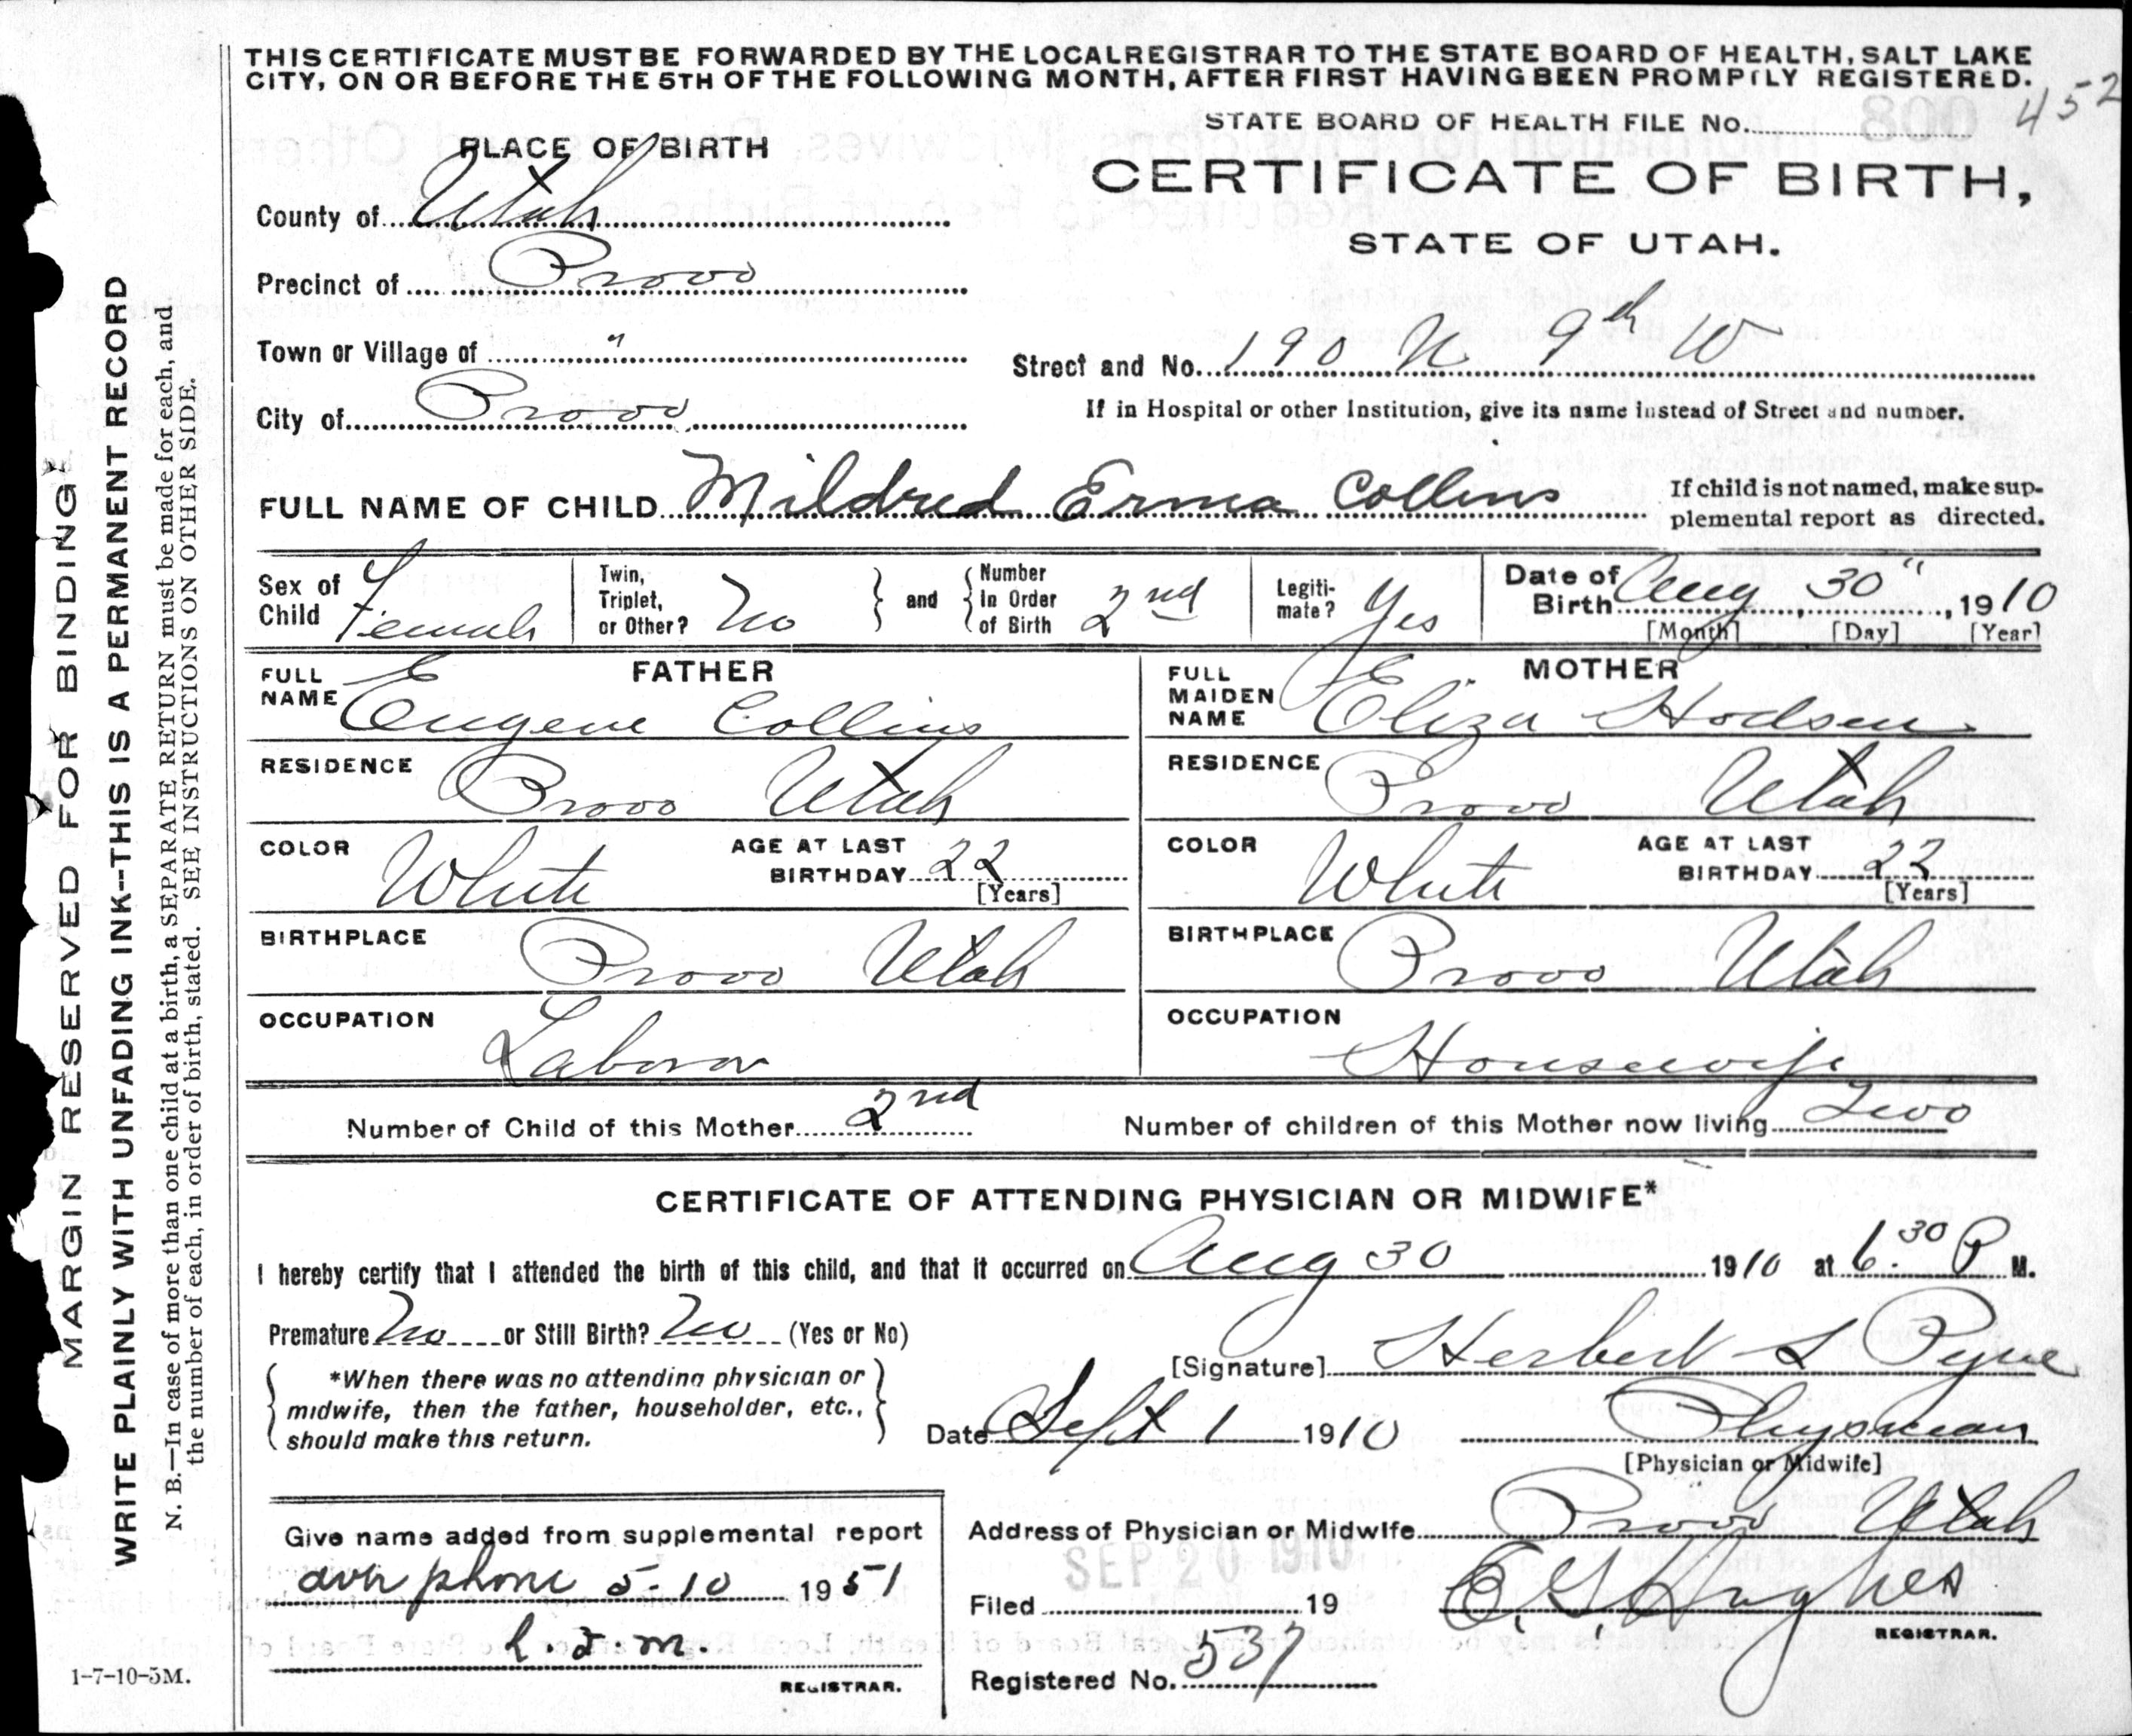 THIS CERTIFICATE MUST BE FORWARDED BY THE LOCAL REGISTRAR TO THE STATE BOARD OF HEALTH, SALT LAKE
CITY, ON OR BEFORE THE 5TH OF THE FOLLOWING MONTH, AFTER FIRST HAVING BEEN PROMPTLY REGISTERED.
452
STATE BOARD OF HEALTH FILE No.
CERTIFICATE OF BIRTH,
STATE OF UTAH.
PLACE OF BIRTH
County of Utah
Precinct of Provo
Town or Village of "
City of Provo
Street and No. 190 N 9th W
If in Hospital or other Institution, give its name instead of Street and number.
FULL NAME OF CHILD Mildred Erma Collins
If child is not named, make sup-
plemental report as directed.
Sex of Child Female
Twin, Triplet, or Other? No
and
Number In Order of Birth 2nd
Legiti-mate? Yes
Date of Birth Aug 30", 1910
[Month] [Day] [Year]
FATHER
FULL NAME Eugene Collins
RESIDENCE Provo Utah
COLOR White
AGE AT LAST BIRTHDAY 22
[Years]
BIRTHPLACE Provo Utah
OCCUPATION Laborer
MOTHER
FULL MAIDEN NAME Eliza Hodson
RESIDENCE Provo Utah
COLOR White
AGE AT LAST BIRTHDAY 22
[Years]
BIRTHPLACE Provo Utah
OCCUPATION Housewife
Number of Child of this Mother 2nd
Number of children of this Mother now living Two
CERTIFICATE OF ATTENDING PHYSICIAN OR MIDWIFE*
I hereby certify that I attended the birth of this child, and that it occurred on Aug 30 1910 at 6.30 P M.
Premature No or Still Birth? No (Yes or No)
*When there was no attending physician or
midwife, then the father, householder, etc.,
should make this return.
[Signature] Herbert S Pyne
Date Sept 1 1910
Physician
[Physician or Midwife]
Address of Physician or Midwife Provo Utah
SEP 20 1910
Filed 19
E. G. Hughes
REGISTRAR.
Registered No. 537
Give name added from supplemental report
over phone 5-10 1951
REGISTRAR.
1-7-10-5M.
MARGIN RESERVED FOR BINDING
WRITE PLAINLY WITH UNFADING INK--THIS IS A PERMANENT RECORD
N. B.—In case of more than one child at a birth, a SEPARATE RETURN must be made for each, and
the number of each, in order of birth, stated. SEE INSTRUCTIONS ON OTHER SIDE.